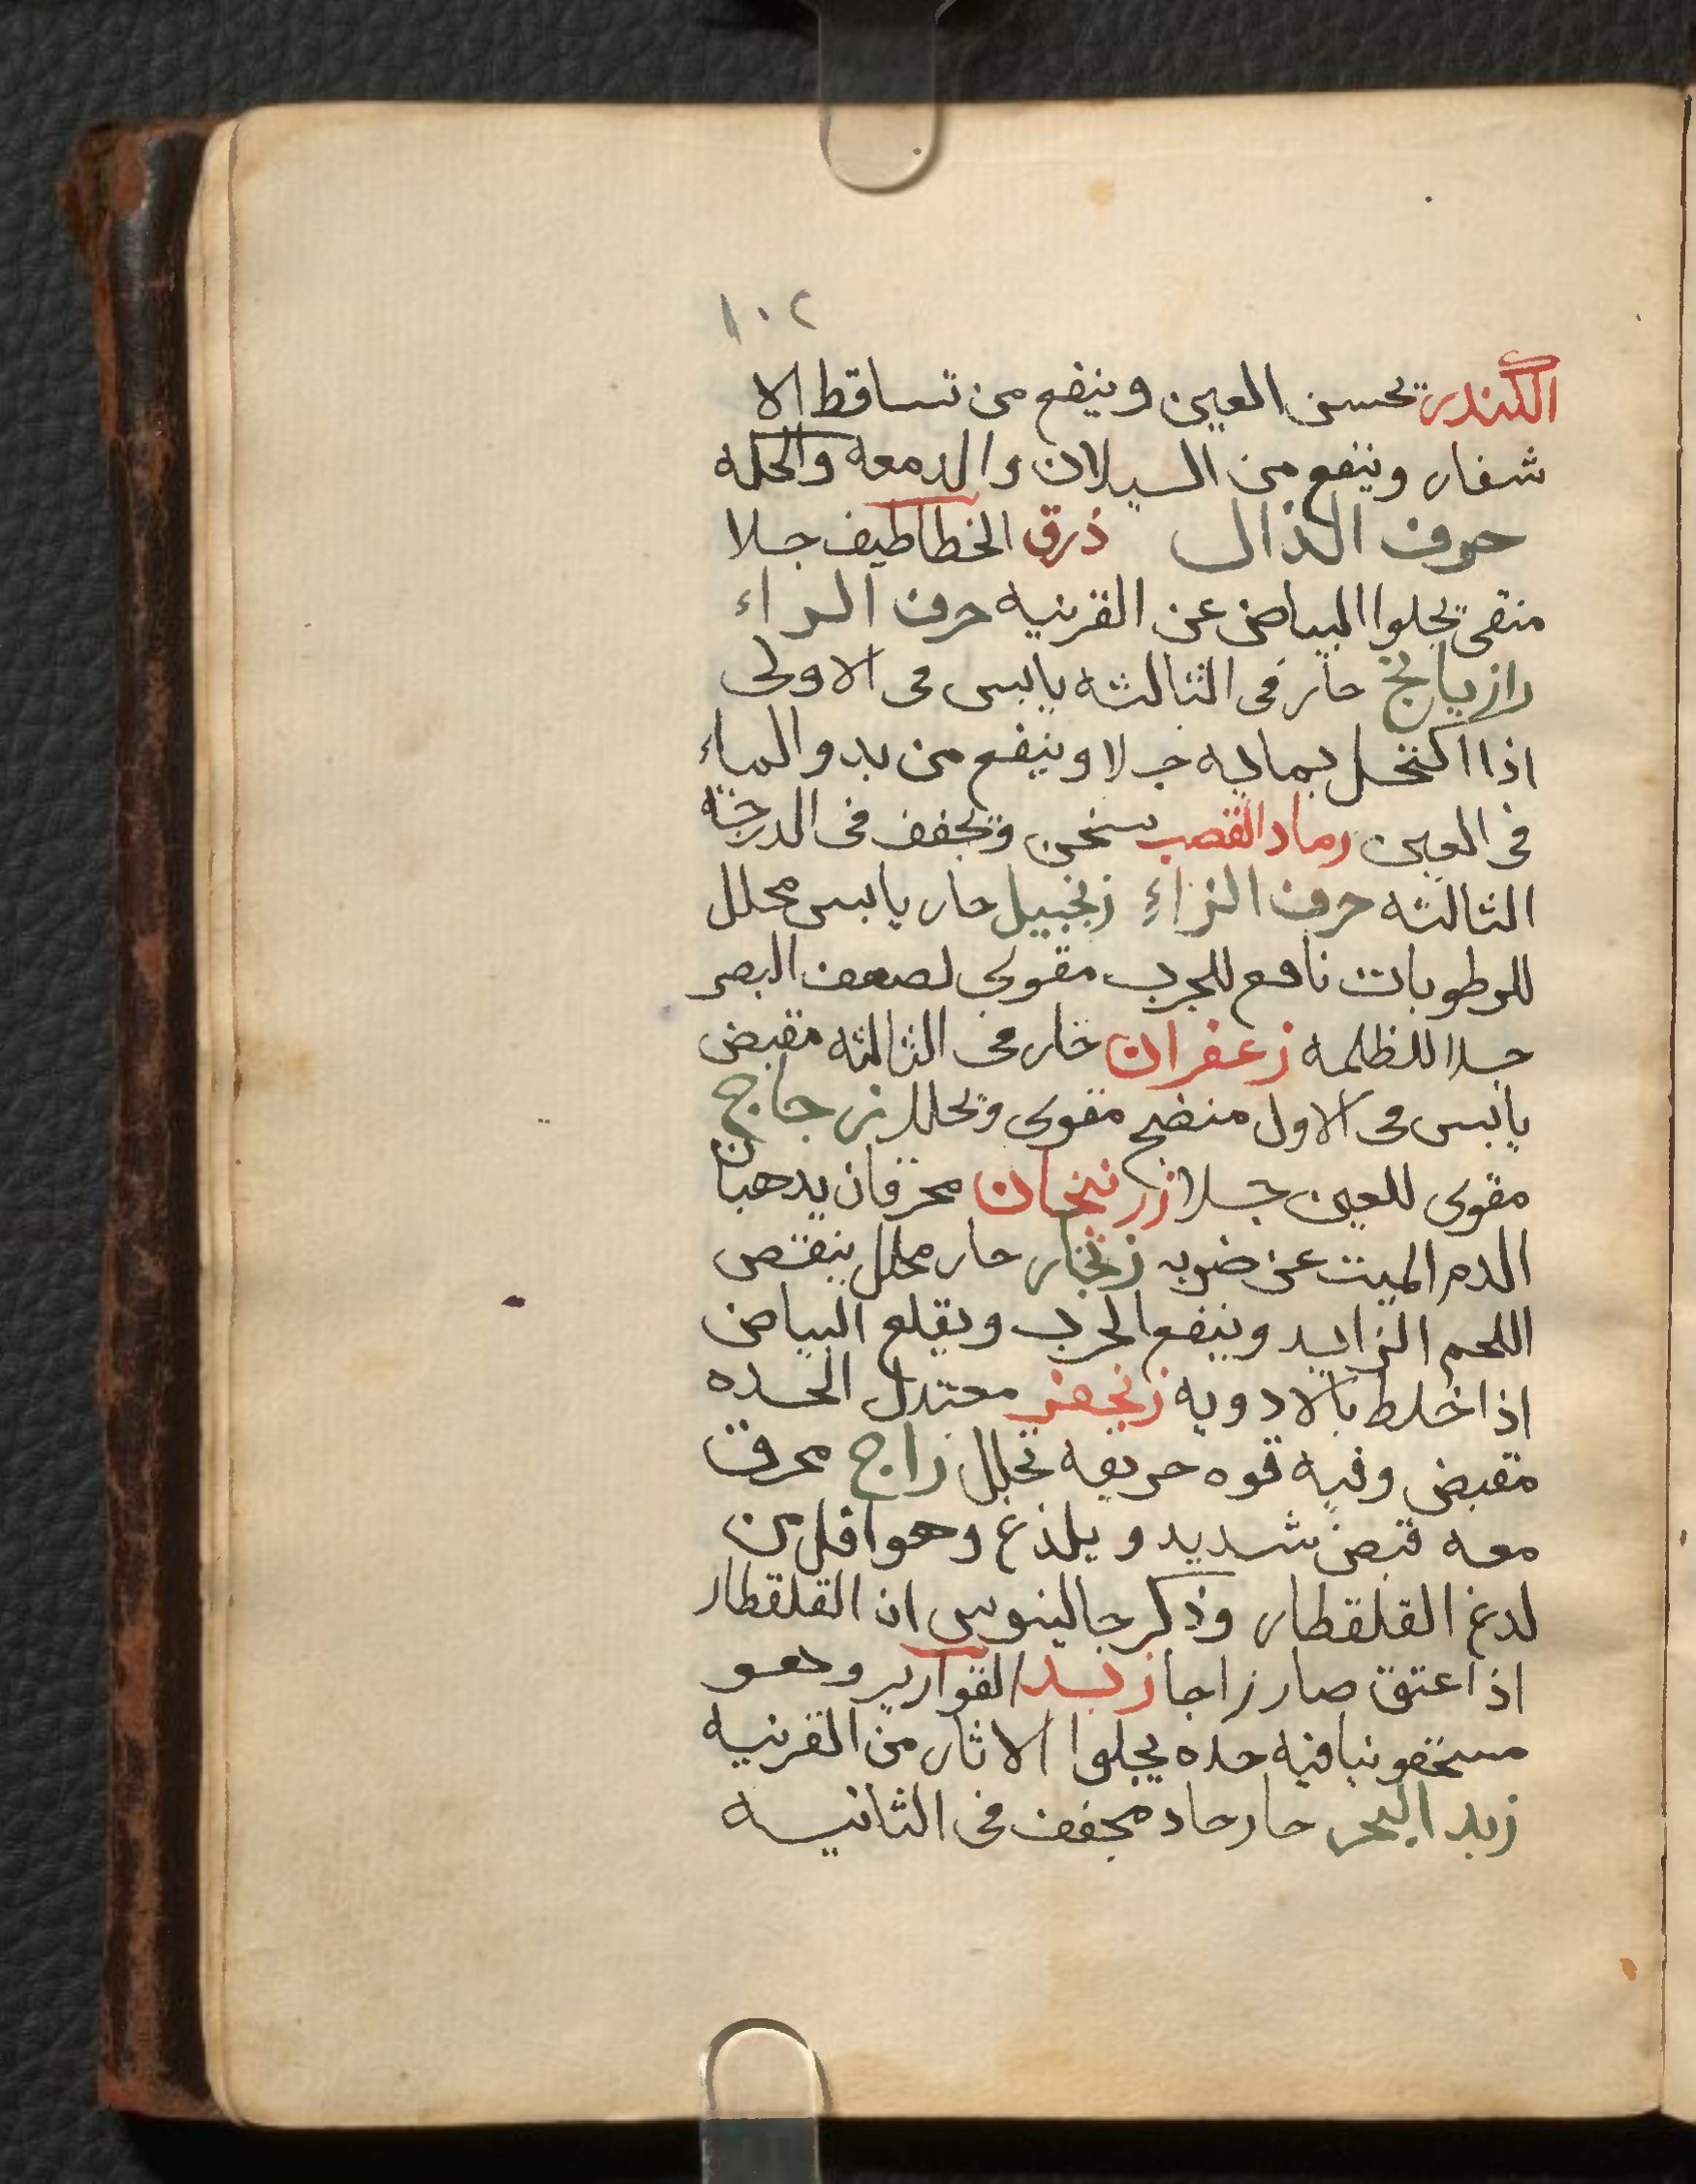 ١٠٢
الكندر تحسن العين وينفع من تساقط الا
شفار وينفع من السيلان والدمعه والحكه
حرف الذال ذرق الخطاطيف جلا
منقى يجلوا البياض عن القرنيه حرف الراء
رازيانج حار فى الثالثه يابس فى الاولى
اذا اكتحل بمايه جلا وينفع من بدو الماء
فى العين رماد القصب يسخن ويجفف فى الدرجة
الثالثه حرف الزاء زنجبيل حار يابس محلل
للرطوبات نافع للجرب مقوى لضعف البصر
جلا للظلمه زعفران حار فى الثالثه مقبض
يابس فى الاول منضج مقوى ويحلل زجاج
مقوى للعين جلا زرنيخان محرقان يدهبان
الدم الميت عن ضربه زنجار حار محلل ينقص
اللحم الزايد وينفع الجرب ويقلع البياض
اذا خلط بالادويه زنجفر معتدل الحده
مقبض وفيه قوه حريفه تحلل زاج محرق
معه قبض شديد ويلذع وهو اقل من
لدغ القلقطار وذكر جالينوس ان القلقطار
اذا عتق صار زاجا زبد القوارير وهو
مسحقونيا فيه حده يجلوا الاثار من القرنيه
زبد البحر حار حاد مجفف فى الثانيه